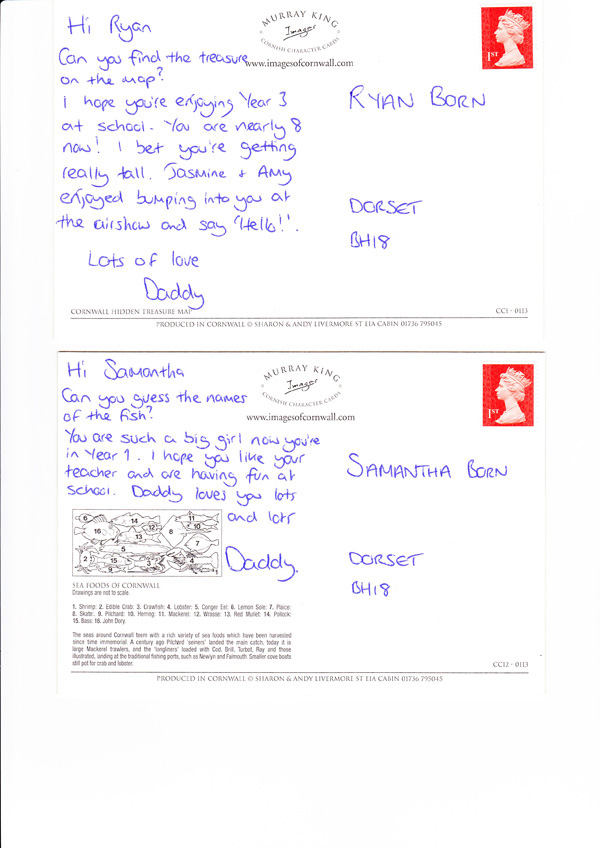 Hi Ryan
MURRAY KING
Images
CORNISH CHARACTER CARDS
1ST
Can you find the treasure
www.imagesofcornwall.com
on the map?
I hope you're enjoying Year 3
at school. You are nearly 8
now! I bet you're getting
really tall. Jasmine + Amy
enjoyed bumping into you at
the airshow and say 'Hello!'.
Lots of love
Daddy
RYAN BORN
DORSET
BH18
CORNWALL HIDDEN TREASURE MAP
CC1 - 0113
PRODUCED IN CORNWALL © SHARON & ANDY LIVERMORE ST EIA CABIN 01736 795045
Hi Samantha
MURRAY KING
Images
CORNISH CHARACTER CARDS
1ST
Can you guess the names
of the fish?
www.imagesofcornwall.com
You are such a big girl now you're
in Year 1. I hope you like your
teacher and are having fun at
school. Daddy loves you lots
and lots
Daddy.
SAMANTHA BORN
DORSET
BH18
SEA FOODS OF CORNWALL
Drawings are not to scale.
1. Shrimp: 2. Edible Crab: 3. Crawfish: 4. Lobster: 5. Conger Eel: 6. Lemon Sole: 7. Plaice:
8. Skate: 9. Pilchard: 10. Herring: 11. Mackerel: 12. Wrasse: 13. Red Mullet: 14. Pollock:
15. Bass: 16. John Dory.
The seas around Cornwall teem with a rich variety of sea foods which have been harvested
since time immemorial. A century ago Pilchard 'seiners' landed the main catch, today it is
large Mackerel trawlers, and the 'longliners' loaded with Cod, Brill, Turbot, Ray and those
illustrated, landing at the traditional fishing ports, such as Newlyn and Falmouth. Smaller cove boats
still pot for crab and lobster.
CC12 - 0113
PRODUCED IN CORNWALL © SHARON & ANDY LIVERMORE ST EIA CABIN 01736 795045